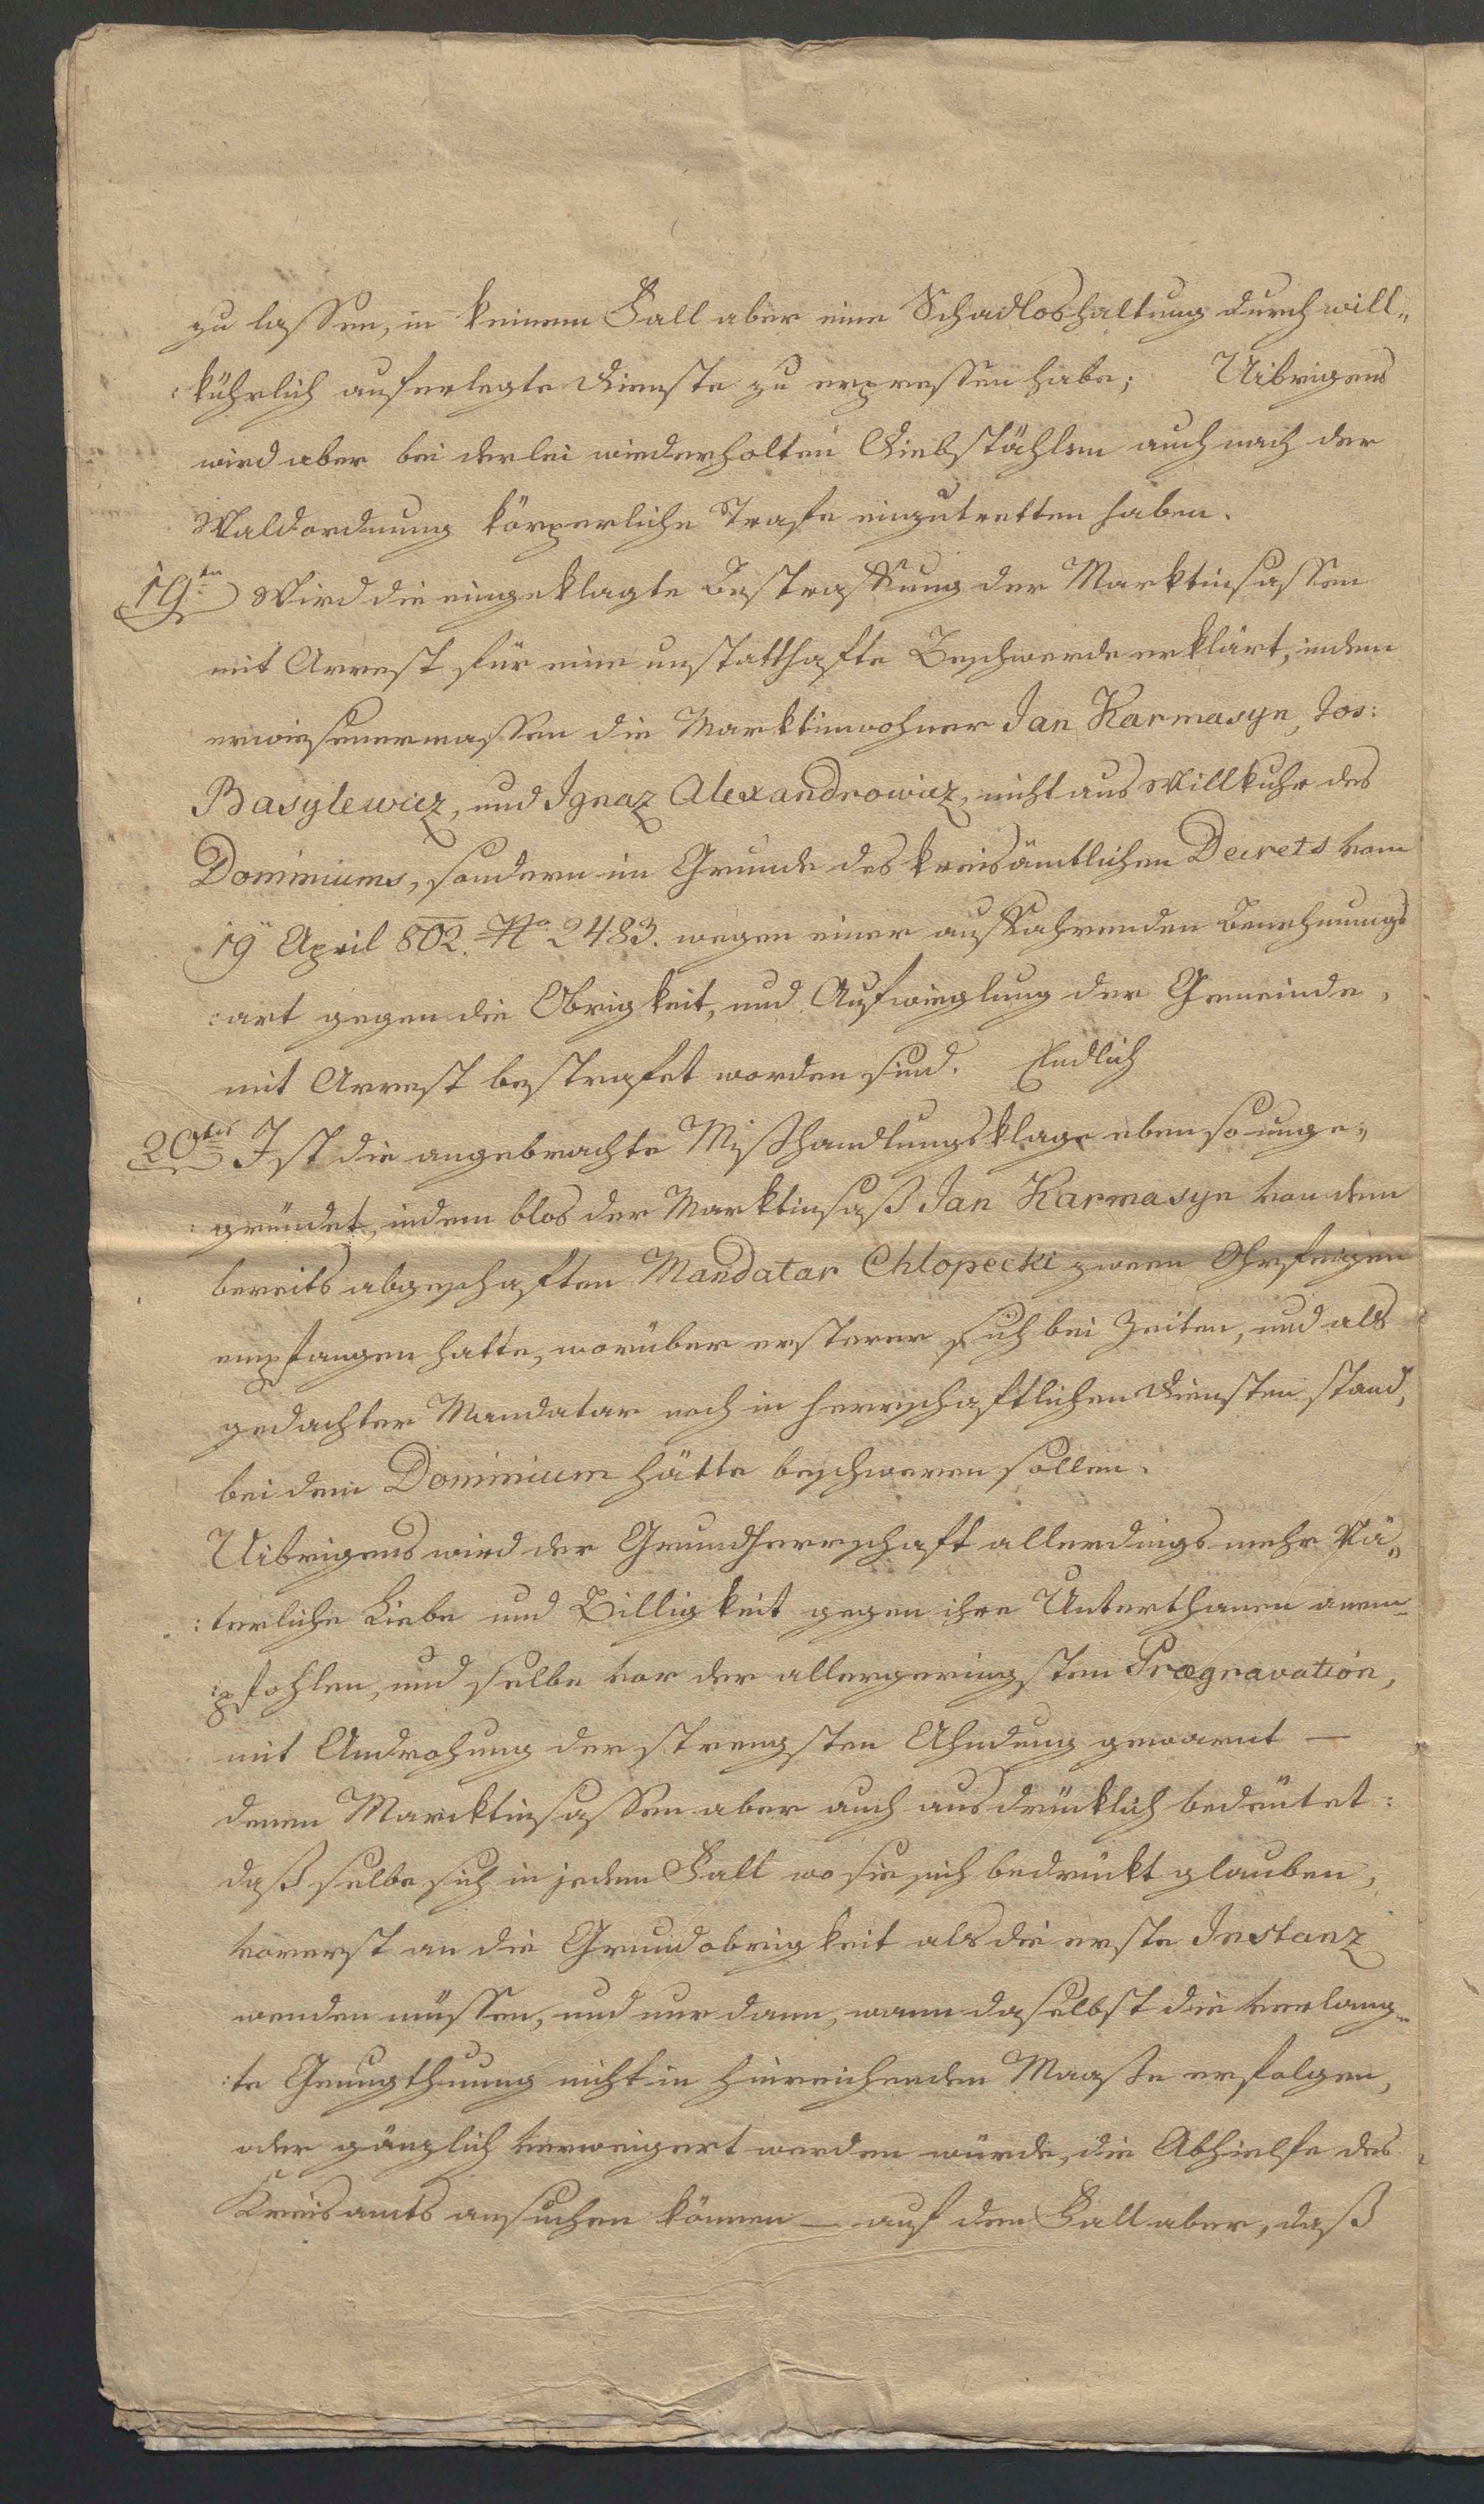 zu lassen, in keinem Fall aber eine Schadloshaltung durch will„
:kührlich auferlegte Dienste zu erpressen habe; Uibrigens
wird aber bei derlei wiederholten Diebstählen auch nach der
Waldordnung körperliche Strafe einzutretten haben.
19ten Wird die eingeklagte Bestraffung der Marktinsassen
mit Arrest für eine unstatthafte Beschwerde erklärt, indem
erwiesenermassen die Marktinwohner Jan Karmasyn, Jos:
Basylewicz, und Ignaz Alexandrowicz, nicht aus Willkuhr des
Dominiums, sondern im Grunde des kreisämtlichen Decrets vom
19n April 802. No 2483. wegen einer auffahrenden Benehmungs
:art gegen die Obrigkeit, und Aufwieglung der Gemeinde,
mit Arrest bestrafet worden sind. Endlich
20tens Ist die angebrachte Mißhandlungsklage eben so unge„
gründet, indem blos der Marktinsaß Jan Karmasyn von dem
bereits abgeschaften Mandatar Chlopecki zween Ohrfeigen
empfangen hatte, worüber ersterer sich bei Zeiten, und als
gedachter Mandatar noch in herrschaftlichen Diensten stand,
bei dem Dominium hätte beschweren sollen.
Uibrigens wird der Grundherrschaft allerdings mehr Vä„
:terliche Liebe und Billigkeit gegen ihre Unterthanen anem„
:pfohlen, und selbe vor der allergeringsten Prægravation,
mit Androhung der strengsten Ahndung gewarnt —
denen Marcktinsassen aber auch ausdrücklich bedeutet:
daß selbe sich in jedem Fall wo sie sich bedrückt glauben,
vorerst an die Grundobrigkeit als die erste Instanz
wenden müssen, und nur dann, wann daselbst die verlang„
:te Genugthuung nicht in hinreichenden Maaße erfolgen,
oder gänzlich verweigert werden würde, die Abhielfe des
Kreisamts ansuchen können — auf den Fall aber, daß